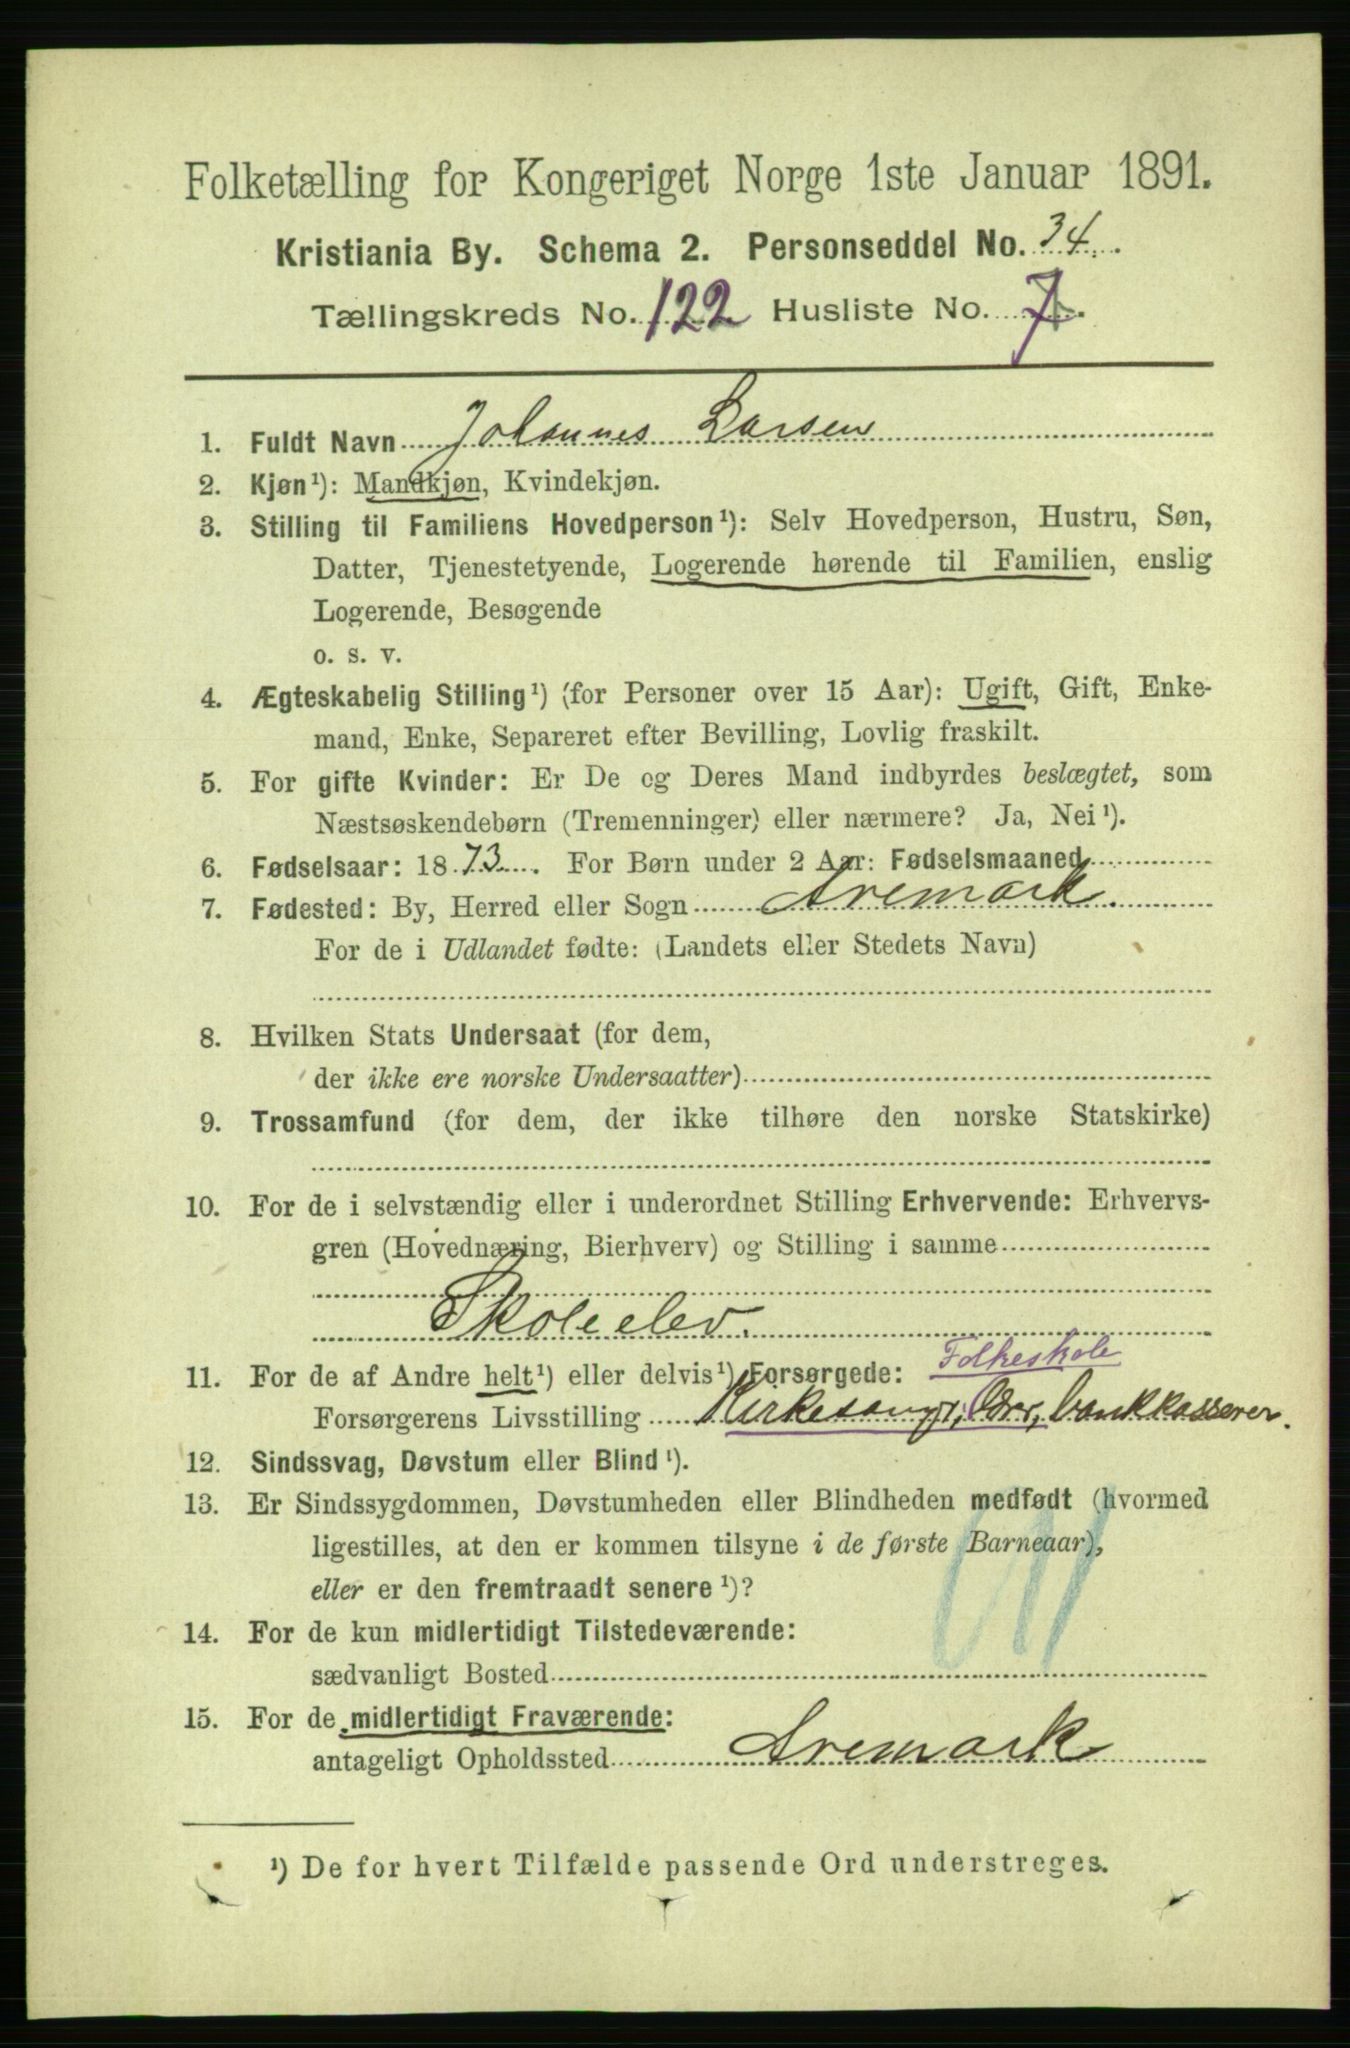 Folketælling for Kongeriget Norge 1ste Januar 1891.
Kristiania By. Schema 2. Personseddel No. 34.
Tællingskreds No. 122 Husliste No. 7.
1. Fuldt Navn Johannes Larsen
2. Kjøn¹): Mandkjøn, Kvindekjøn.
3. Stilling til Familiens Hovedperson¹): Selv Hovedperson, Hustru, Søn,
Datter, Tjenestetyende, Logerende hørende til Familien, enslig
Logerende, Besøgende
o. s. v.
4. Ægteskabelig Stilling¹) (for Personer over 15 Aar): Ugift, Gift, Enke-
mand, Enke, Separeret efter Bevilling, Lovlig fraskilt.
5. For gifte Kvinder: Er De og Deres Mand indbyrdes beslægtet, som
Næstsøskendebørn (Tremenninger) eller nærmere? Ja, Nei¹).
6. Fødselsaar: 1873. For Børn under 2 Aar: Fødselsmaaned
7. Fødested: By, Herred eller Sogn Aremark.
For de i Udlandet fødte: (Landets eller Stedets Navn)
8. Hvilken Stats Undersaat (for dem,
der ikke ere norske Undersaatter)
9. Trossamfund (for dem, der ikke tilhøre den norske Statskirke)
10. For de i selvstændig eller i underordnet Stilling Erhvervende: Erhvervs-
gren (Hovednæring, Bierhverv) og Stilling i samme
Skoleelev.
11. For de af Andre helt¹) eller delvis¹) Forsørgede: Folkeskole
Forsørgerens Livsstilling Kirkesanger, lærer, bankkasserer.
12. Sindssvag, Døvstum eller Blind¹).
13. Er Sindssygdommen, Døvstumheden eller Blindheden medfødt (hvormed
ligestilles, at den er kommen tilsyne i de første Barneaar),
eller er den fremtraadt senere¹)?
14. For de kun midlertidigt Tilstedeværende:
sædvanligt Bosted
15. For de midlertidigt Fraværende:
antageligt Opholdssted Aremark
¹) De for hvert Tilfælde passende Ord understreges.